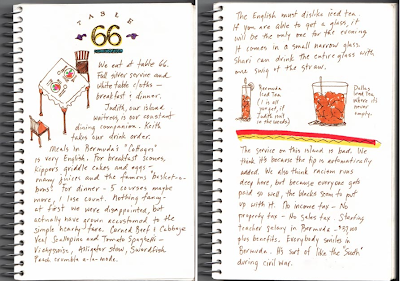 TABLE
66
We eat at table 66.
Full silver service and
white table cloths -
breakfast & dinner.
Judith, our island
waitress is our constant
dining companion. Keith
takes our drink order.
Meals in Bermuda's "Cottages"
is very English. For breakfast scones,
kippers griddle cakes and eggs -
many juices and the famous basket-o-
bons! For dinner - 5 courses maybe
more, I lose count. Nothing fancy -
at first we were disappointed, but
actually have grown accustomed to the
simple hearty fare. Corned Beef & Cabbage
Veal Scallopine and Tomato Spaghetti -
Vichyssoise, Alligator stew, Swordfish
Pear crumble a-la-mode.
The English must dislike iced tea.
If you are able to get a glass, it
will be the only one for the evening.
It comes in a small narrow glass.
Shari can drink the entire glass with
one swig of the straw.
Bermuda
Iced Tea
(1 is all
you get, if
Judith is
in the weeds)
Dallas
Iced Tea
where it's
never
empty.
The service on this island is bad. We
think it's because the tip is automatically
added. We also think racism runs
deep here, but because everyone gets
paid so well, the blacks seem to put
up with it. No income tax - No
property tax - No sales tax. Starting
teacher salary in Bermuda -
plus benefits. Everybody smiles in
Bermuda. It's sort of like the "South"
during civil war.